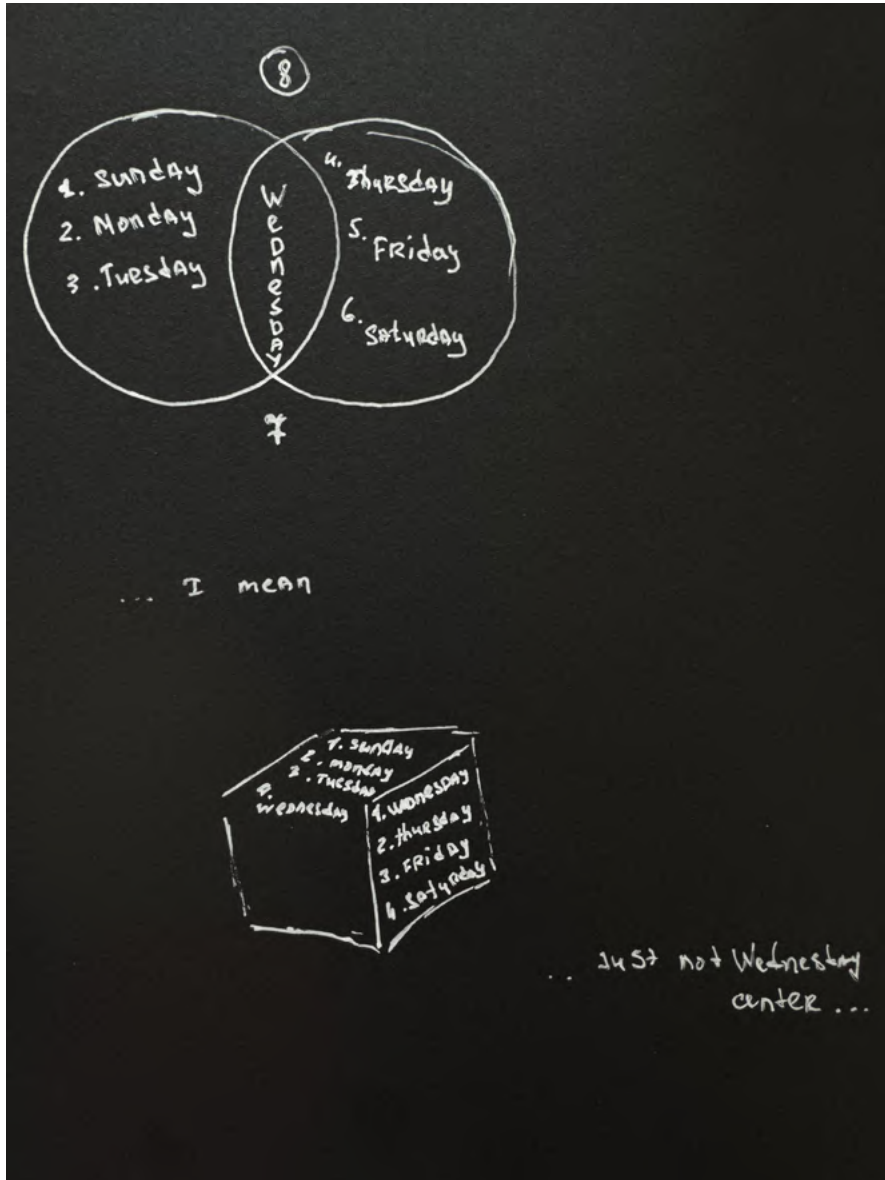 8
1. Sunday
2. Monday
3. Tuesday
Wednesday
4. Thursday
5. Friday
6. Saturday
7
... I mean
1. Sunday
2. Monday
3. Tuesday
4. Wednesday
1. Wdnesday
2. thursday
3. Friday
4. Saturday
... Just not Wednesday
center ...